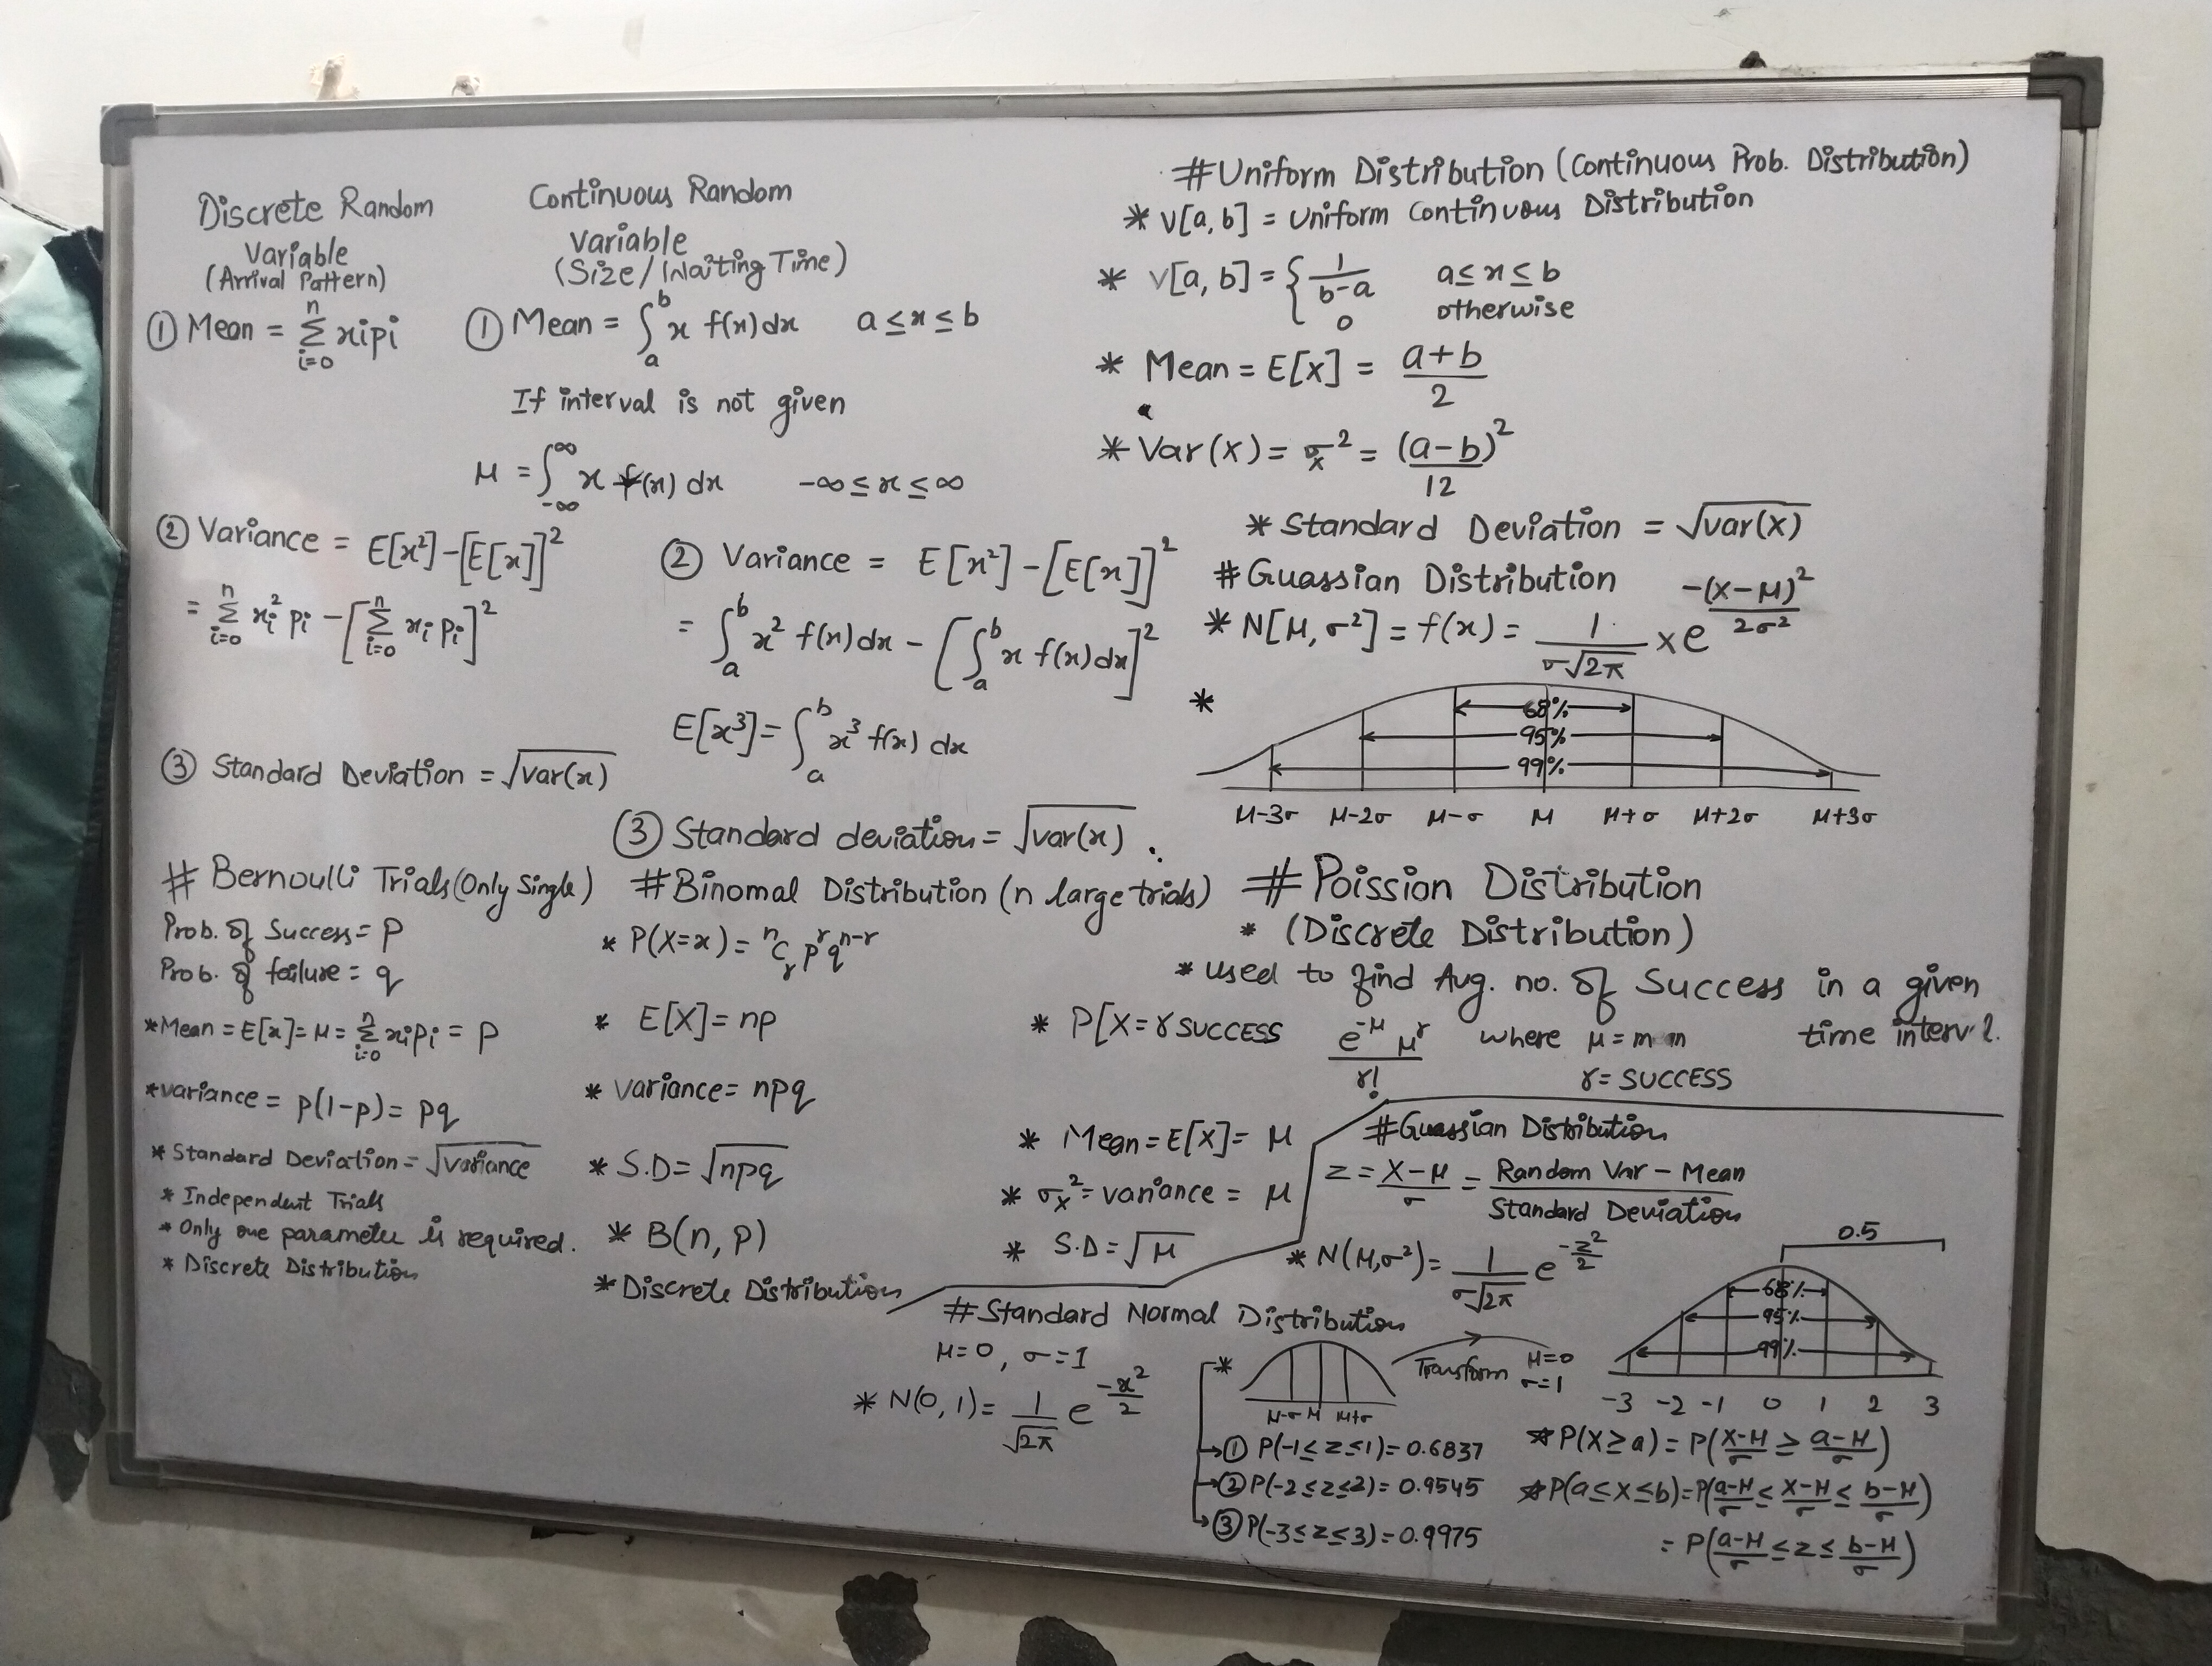 Discrete Random
Variable
(Arrival Pattern)
① Mean = n Σ i=0 xipi
② Variance = E[x²] - [E[x]]²
= n Σ i=0 xi² pi - [n Σ i=0 xi pi]²
③ Standard Deviation = √var(x)
Continuous Random
Variable
(Size/Waiting Time)
① Mean = ∫ₐᵇ x f(x) dx a ≤ x ≤ b
If interval is not given
μ = ∫₋∞^∞ x f(x) dx -∞ ≤ x ≤ ∞
② Variance = E[x²] - [E[x]]²
= ∫ₐᵇ x² f(x) dx - [∫ₐᵇ x f(x) dx]²
E[x³] = ∫ₐᵇ x³ f(x) dx
③ Standard deviation = √var(x) .
#Uniform Distribution (Continuous Prob. Distribution)
* V[a, b] = Uniform Continuous Distribution
* V[a, b] = { 1/(b-a) a ≤ x ≤ b
0 otherwise
* Mean = E[X] = (a+b)/2
* Var(X) = σx² = (a-b)²/12
* Standard Deviation = √var(X)
# Guassian Distribution
* N[μ, σ²] = f(x) = 1/(σ√2π) × e^(-(x-μ)²/2σ²)
*
68%
95%
99%
μ-3σ μ-2σ μ-σ μ μ+σ μ+2σ μ+3σ
# Bernoulli Trials (Only Single)
Prob. of Success = P
Prob. of failure = q
* Mean = E[x] = μ = n Σ i=0 xipi = P
* variance = P(1-P) = Pq
* Standard Deviation = √variance
* Independent Trials
* Only one parameter is required.
* Discrete Distribution
# Binomal Distribution (n large trials)
* P(X=x) = ⁿCᵣ pʳ qⁿ⁻ʳ
* E[X] = np
* variance = npq
* S.D = √npq
* B(n, P)
* Discrete Distribution
# Poission Distribution
* (Discrete Distribution)
* used to find Avg. no. of Success in a given
time
* P[X = r SUCCESS e^-μ μ^r / r! where μ =
r = SUCCESS
* Mean = E[X] = μ
* σx² = variance = μ
* S.D = √μ
#Guassian Distribution
z = (X-μ)/σ = (Random Var - Mean)/Standard Deviation
* N(μ,σ²) = 1/(σ√2π) e^(-z²/2)
0.5
68%
95%
99%
-3 -2 -1 0 1 2 3
# Standard Normal Distribution
μ=0, σ=1
* N(0, 1) = 1/√2π e^(-x²/2)
*
μ-σ μ μ+σ
Transform μ=0
σ=1
① P(-1≤z≤1) = 0.6837
② P(-2≤z≤2) = 0.9545
③ P(-3≤z≤3) = 0.9975
* P(X≥a) = P((X-μ)/σ ≥ (a-μ)/σ)
* P(a≤X≤b) = P((a-μ)/σ ≤ (X-μ)/σ ≤ (b-μ)/σ)
= P((a-μ)/σ ≤ z ≤ (b-μ)/σ)